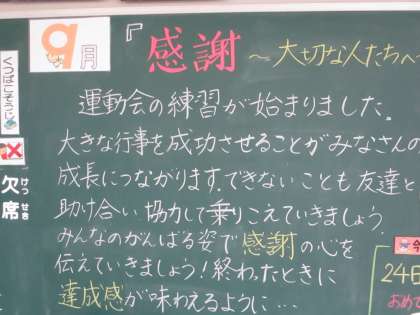 9月
『感謝
～大切な人たちへ
運動会の練習が始まりました。
大きな行事を成功させることがみなさんの
成長につながります。できないことも友達と
助け合い協力して乗りこえていきましょう
みんなのがんばる姿で感謝の心を
伝えていきましょう！終わったときに
達成感が味わえるように…
くつばこそうじ
欠席
けっせき
今
24日
おめで